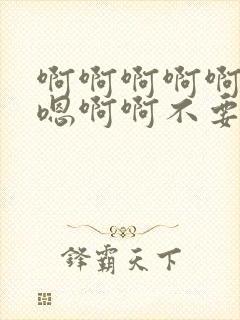 啊啊啊啊啊
嗯啊啊不要
锋霸天下